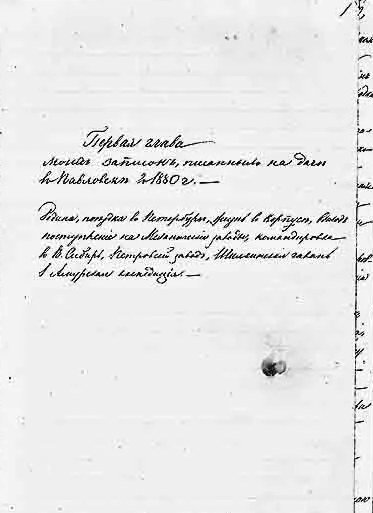 1
Первая глава
моихъ записокъ, писанныхъ на дачѣ
въ Павловскѣ въ 1880 г. —
Родина, поѣздка въ Петербургъ, жизнь въ Корпусѣ,
поступленіе на Механическій заводъ, командировка
въ В. Сибирь, Петровскій заводъ, Шилкинская гавань
1 Амурская експедиція —